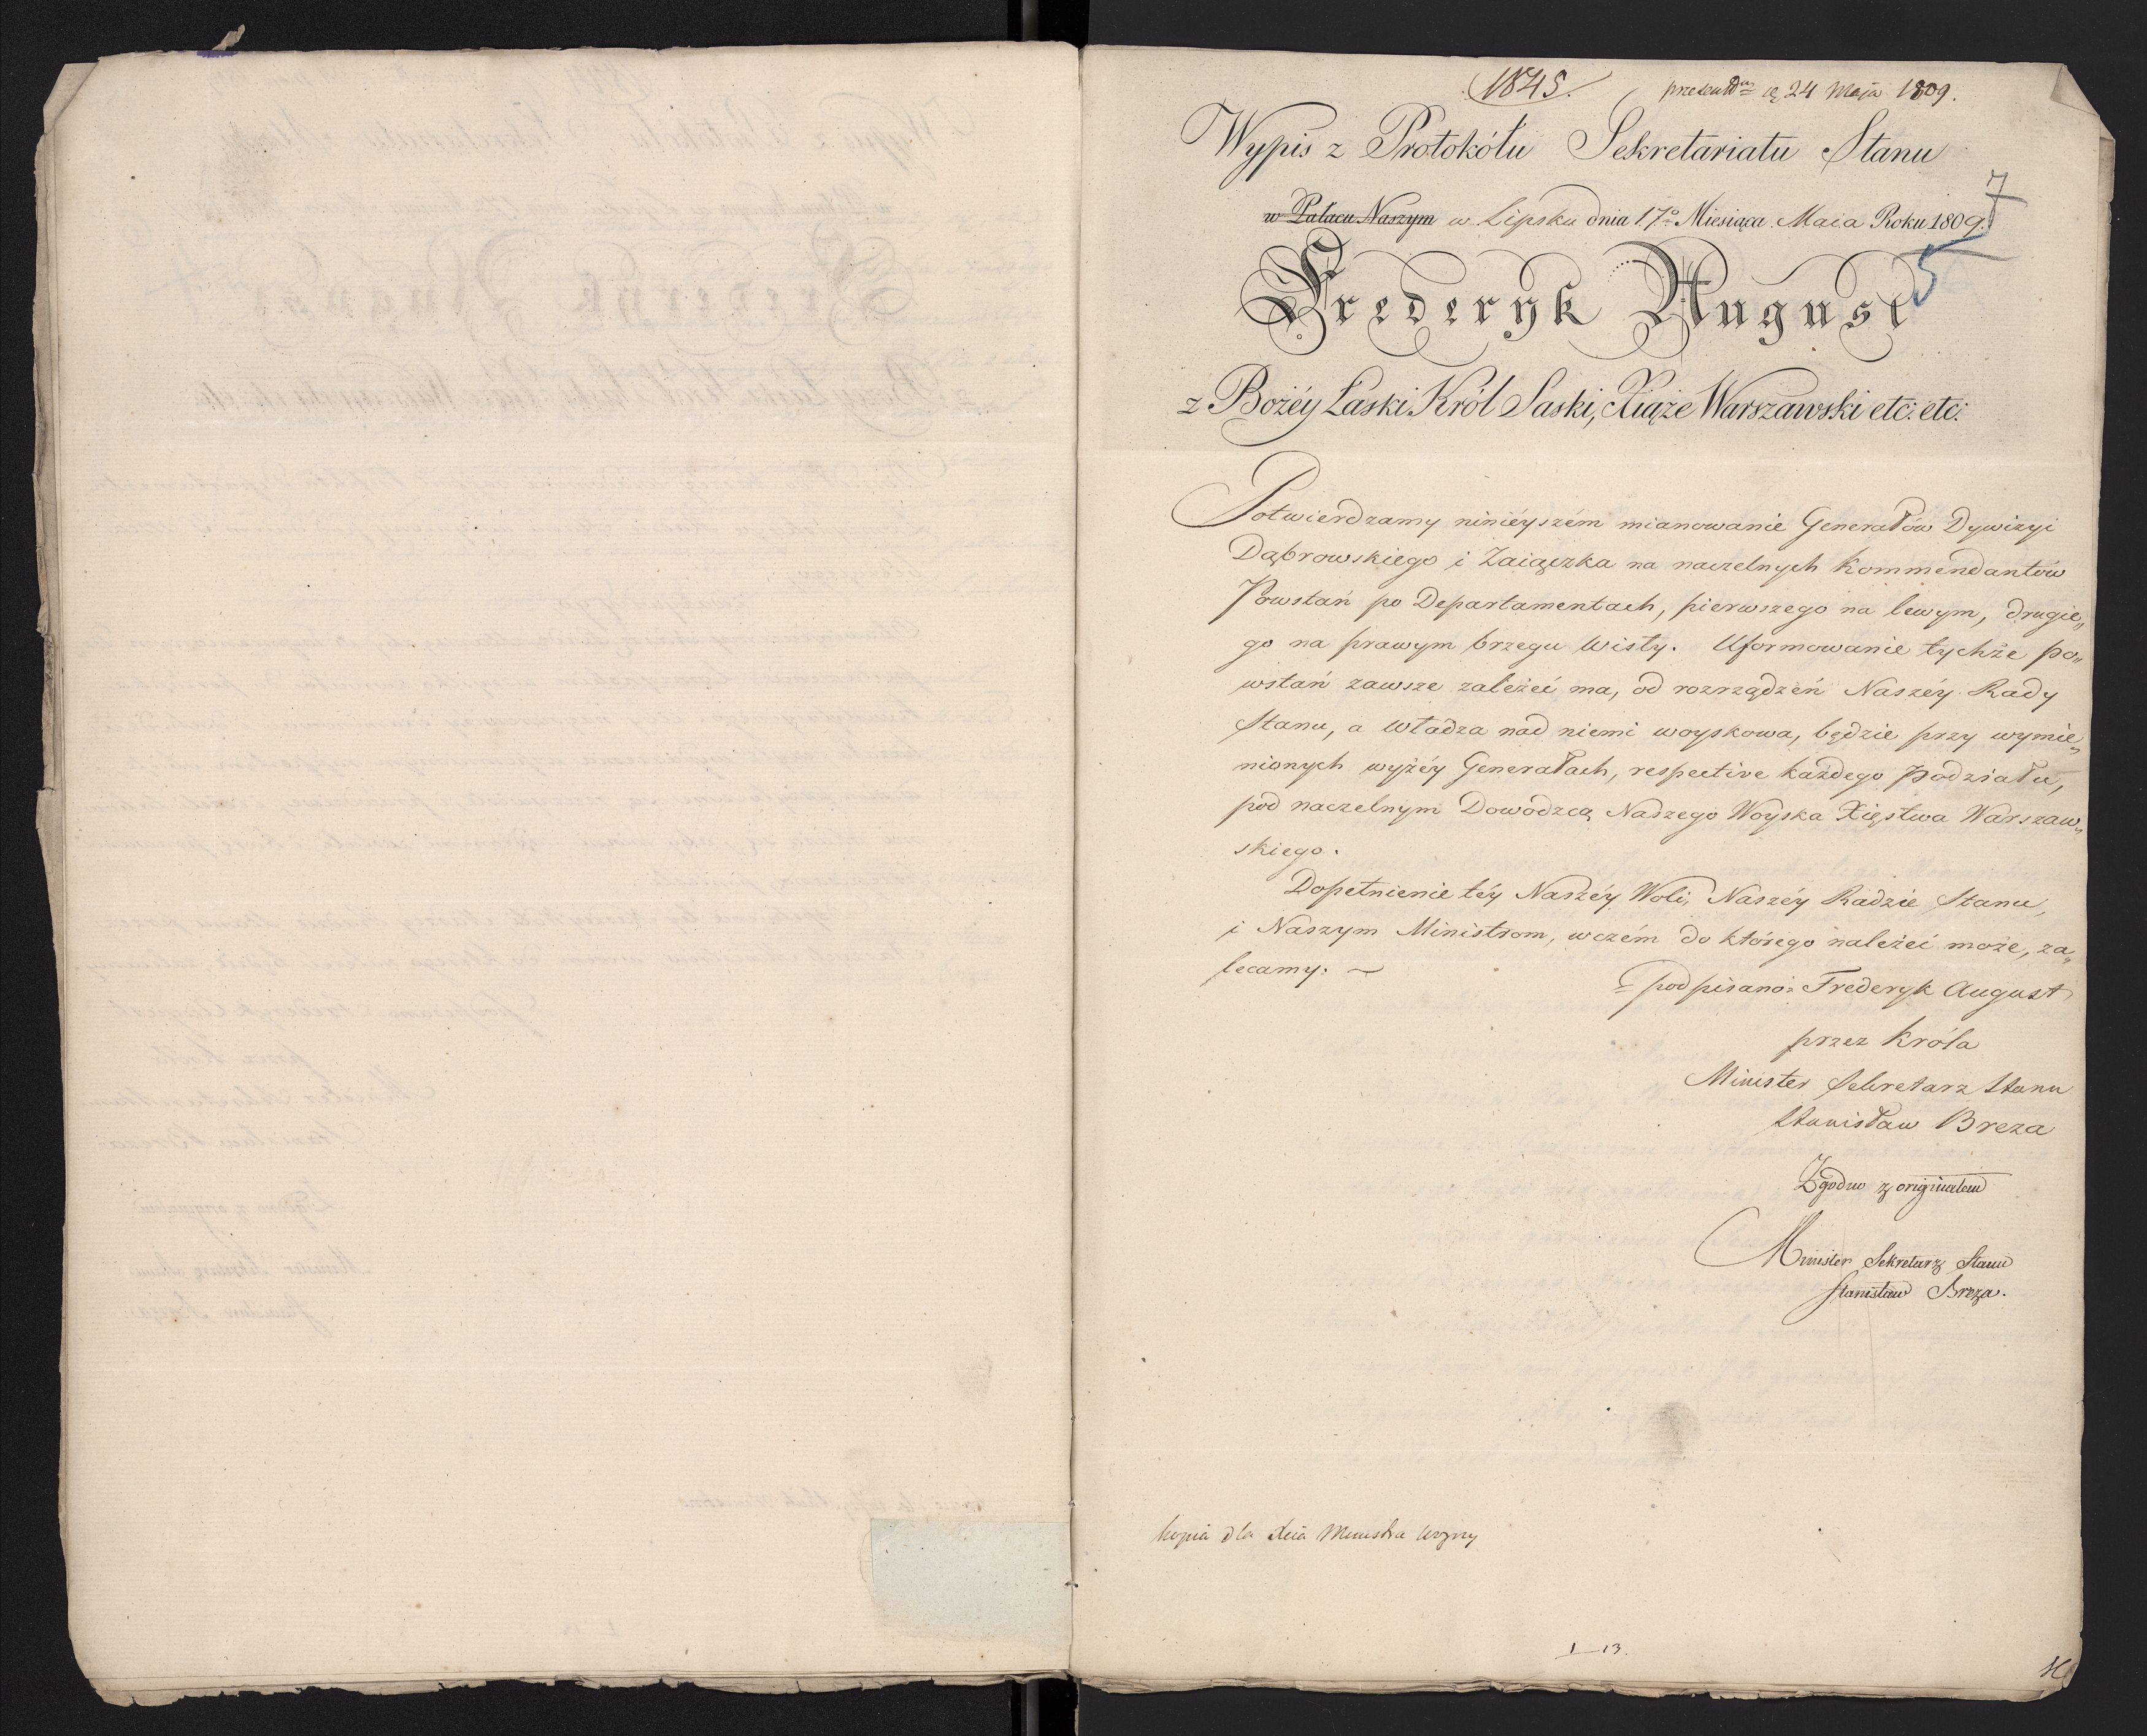 1845.
praesentm 24 Maja 1809.
Wypis z Protokółu Sekretariatu Stanu
7
w Pałacu Naszym w Lipsku dnia 17º Miesiąca Maia Roku 1809.
5
Frederyk August
z Bożéy Łaski Król Saski, Xiąże Warszawski etc: etc:
Potwierdzamy ninieyszém mianowanie Generałów Dywizyi
Dąbrowskiego i Zaiączka na naczelnych Kommendantów
Powstań po Departamentach, pierwszego na lewym, drugie„
go na prawym brzegu Wisły. Uformowanie tychże po„
wstań zawsze zależeć ma, od rozrządzeń Naszéy Rady
Stanu, a Władza nad niemi woyskowa, będzie przy wymie„
nionych wyżéy Generałach, respective każdego Podziału,
pod naczelnym Dowódzcą Naszego Woyska Xięstwa Warszaw„
skiego.
Dopełnienie téy Naszéy Woli, Naszéy Radzie Stanu,
i Naszym Ministrom, wczém do którego należeć może, za„
lecamy. ~
podpisano: Frederyk August
przez Króla
Minister Sekretarz Stanu
Stanisław Breza
Zgodno z originałem
Minister Sekretarz Stanu
Stanisław Breza.
kopia dla Xcia Ministra Woyny
I—13.